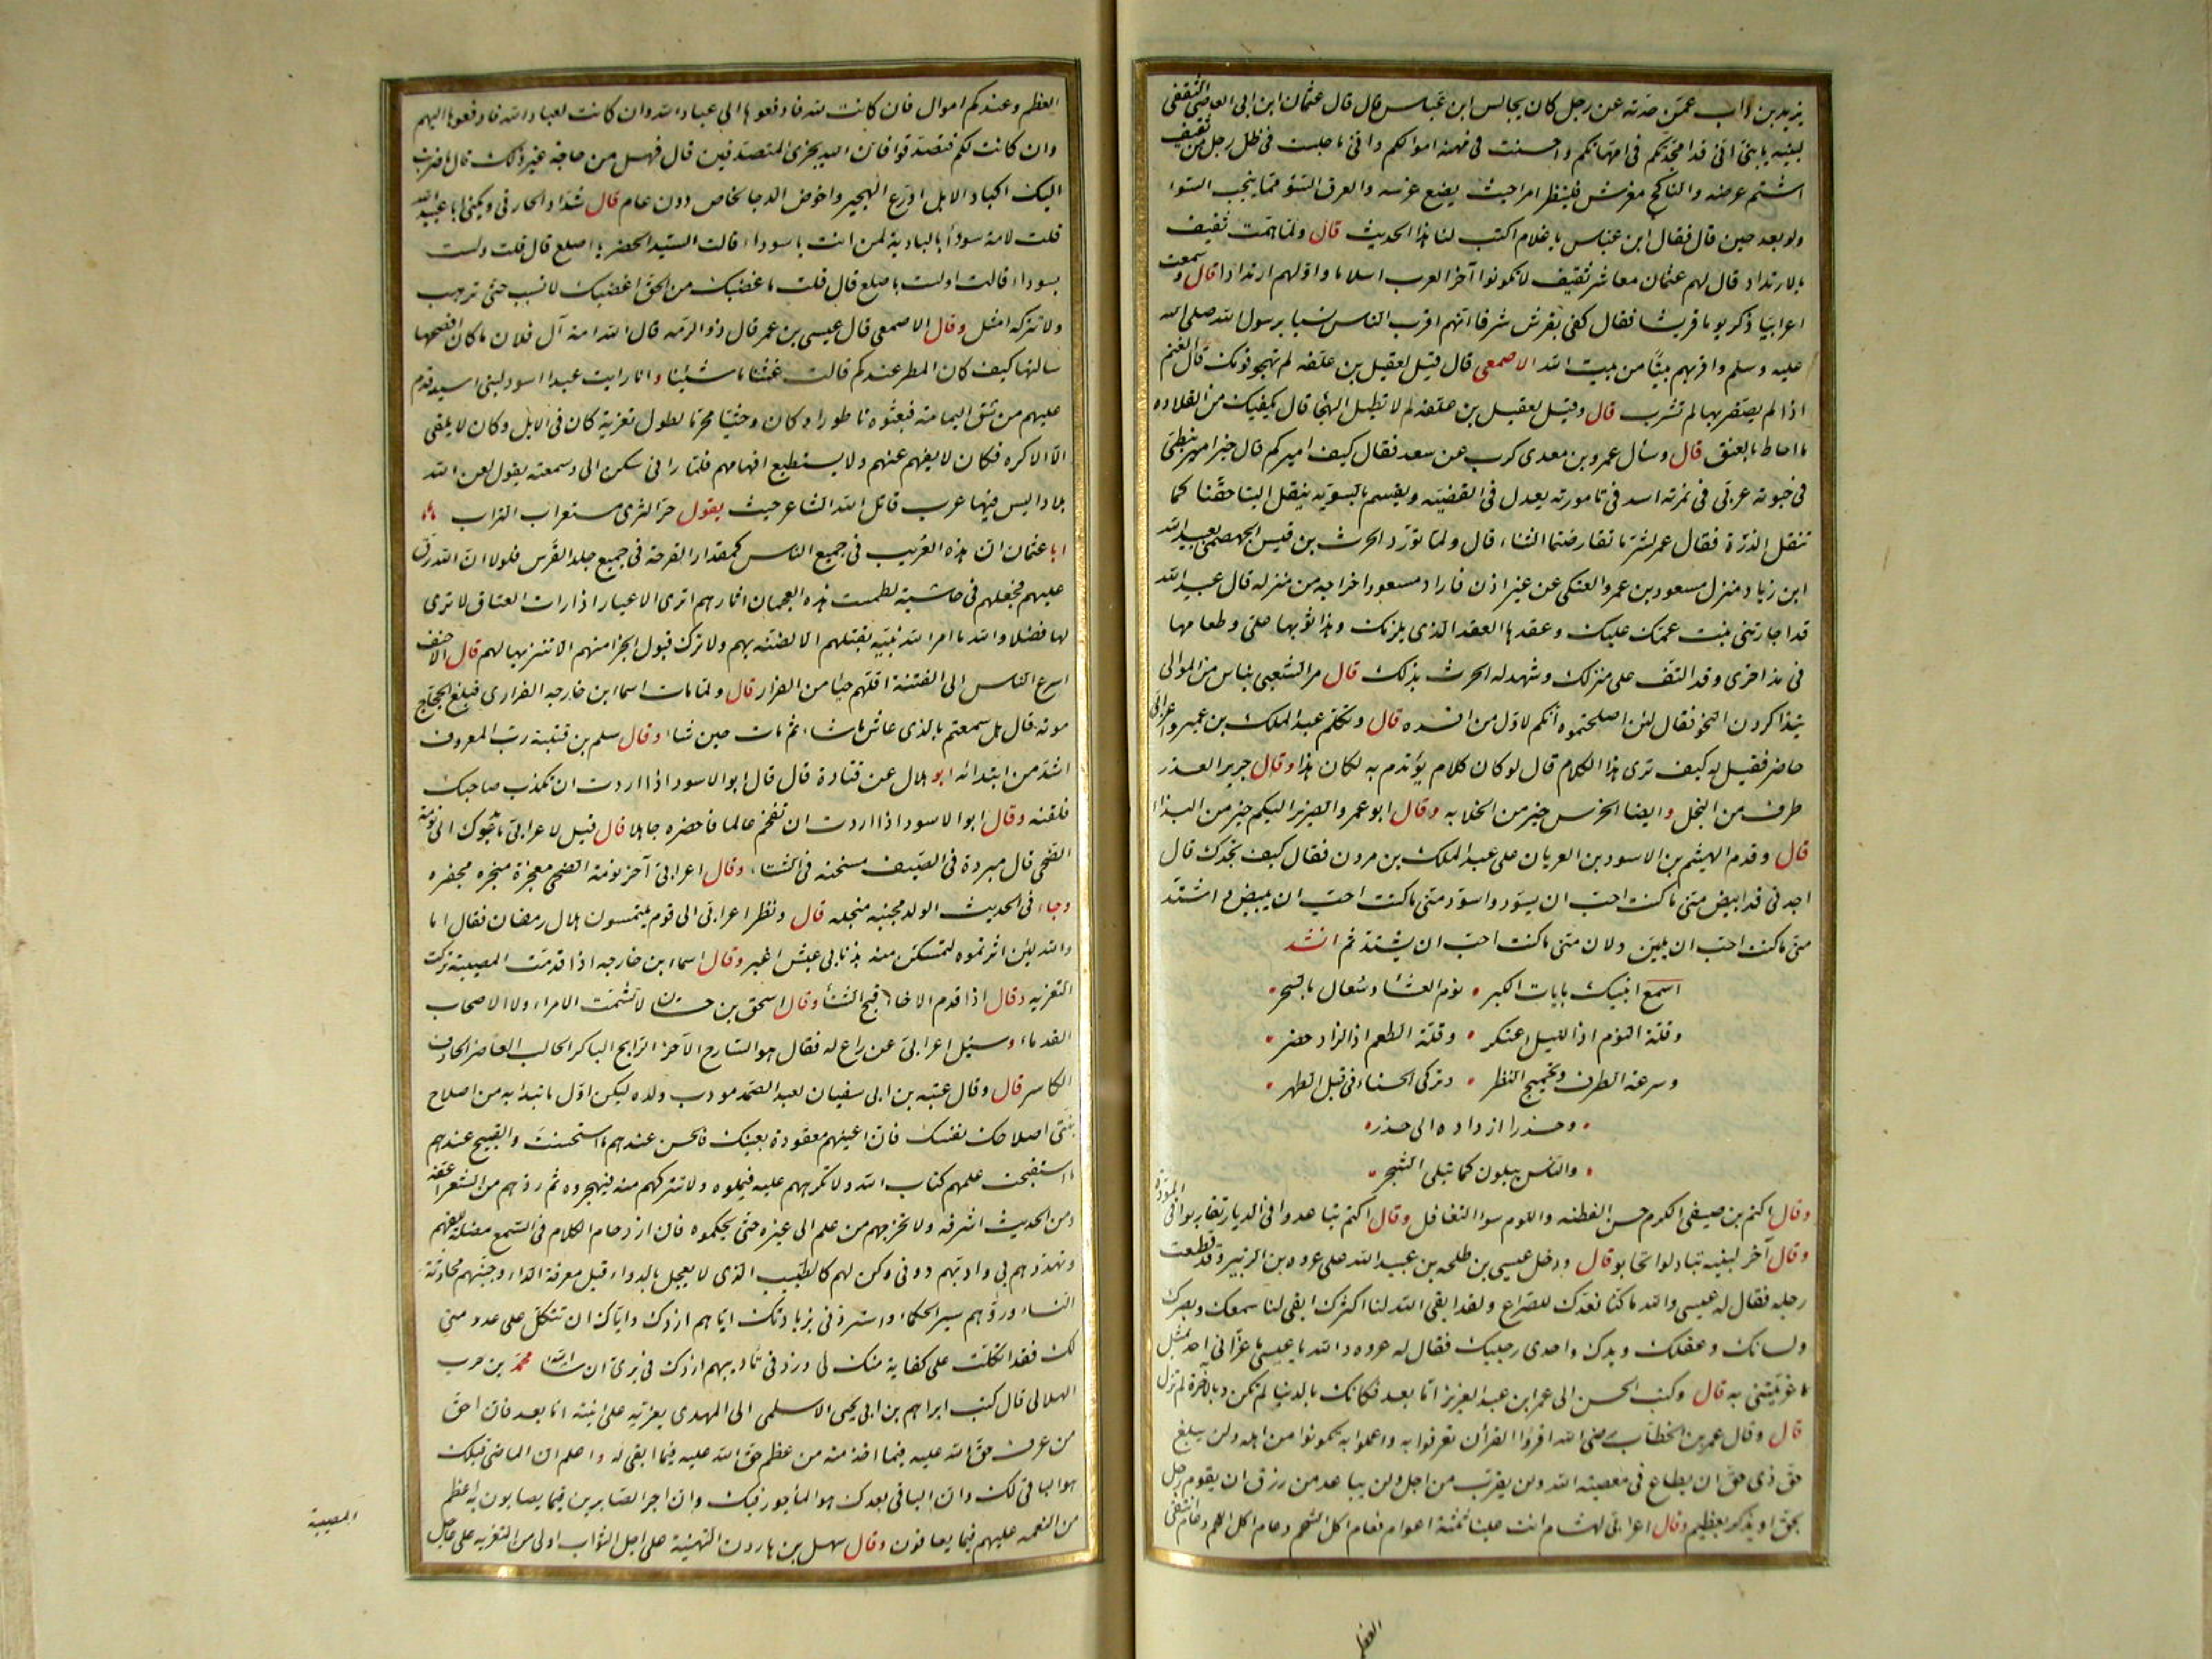 يزيد بن داب عمن حدثه عن رجل كان يجالس ابن عباس قال قال عثمان ابن ابى العاصى الثقفى
لبنيه يا بنى انى قد امجدتكم فى امهاتكم واحسنت فى مهنة اموالكم وانى ما جلست فى ظل رجل من ثقيف
اشتم عرضه والناكح مغرس فلينظر امرا حيث يضع غرسه والعرق السوء قلما ينجب السوا
ولو بعد حين قال فقال ابن عباس يا غلام اكتب لنا هذا الحديث قال ولما همت ثقيف
بالارتداد قال لهم عثمان معاشر ثقيف لا تكونوا آخر العرب اسلاما واولهم ارتدادا قال وسمعت
اعرابيا ذكر يوما قريشا فقال كفى بقريش شرفا انهم اقرب الناس نسبا برسول الله صلى الله
عليه وسلم واقربهم بيتا من بيت الله الاصمعى قال قيل لعقيل بن علفه لم تهجو قومك قال الغنم
اذا لم يصفر بها لم تشرب قال وقيل لعقيل بن علفه لم لا تطيل الهجا قال يكفيك من القلاده
ما احاط بالعنق قال وسأل عمر عمرو بن معدى كرب عن سعد فقال كيف اميركم قال خير امير نبطى
فى حبوته عربى فى نمرته اسد فى تامورته يعدل فى القضيه ويقسم بالسويه ينقل الينا حقنا كما
تنقل الذرة فقال عمر لشد ما تقارضتما الثناء قال ولما تورد الحرث بن قيس الجهضمى بعبيد الله
ابن زياد منزل مسعود بن عمرو العتكى عن غير اذن فاراد مسعود اخراجه من منزله قال عبيد الله
قد اجارتنى بنت عمك عليك وعقدها العقد الذى يلزمك وهذا ثوبها على وطعامها
فى مذاخرى وقد التف على منزلك وشهد له الحرث بذلك قال مر الشعبى بناس من الموالى
يتذاكرون النحو فقال لئن اصلحتموه انكم لاول من افسده قال وتكلم عبد الملك بن عمير واعرابى
حاضر فقيل له كيف ترى هذا الكلام قال لو كان كلام يؤتدم به لكان هذا وقال جرير العذر
طرف من البخل وايضا الخرس خير من الخلابه وقال ابو عمرو الضرير البكم خير من البذاء
قال وقدم الهيثم بن الاسود بن العريان على عبد الملك بن مرون فقال كيف تجدك قال
اجدنى قد ابيض منى ما كنت احب ان يسود واسود منى ما كنت احب ان يبيض واشتد
منى ما كنت احب ان يلين ولان منى ما كنت احب ان يشتد ثم انشد
اسمع انبيك بايات الكبر • نوم العشا وسعال بالسحر •
وقلة النوم اذا الليل اعتكر • وقلة الطعم اذا الزاد حضر •
وسرعة الطرف وتحميج النظر • وتركى الحسناء فى قبل الطهر •
• وحذرا ازداده الى حذر •
• والناس يبلون كما تبلى الشجر •
وقال اكثم بن صيفى الكرم حسن الفطنه واللوم سوا التغافل وقال اكثم تباعدوا فى الديار تقاربوا فى المودة
وقال آخر لبنيه تباذلوا تحابوا قال ودخل عيسى بن طلحه بن عبيد الله على عروه بن الزبير وقد قطعت
رجله فقال له عيسى والله ما كنا نعدك للصراع ولقد ابقى الله لنا اكثرك ابقى لنا سمعك وبصرك
ولسانك وعقلك ويدك واحدى رجليك فقال له عروه والله يا عيسى ما عزانى احد بمثل
ما عزيتنى به قال وكتب الحسن الى عمر ابن عبد العزيز اما بعد فكانك بالدنيا لم تكن وبالآخرة لم تزل
قال وقال عمر بن الخطاب رضى الله اقرؤا القرأن تعرفوا به واعملوا به تكونوا من اهله ولن يبلغ
حق ذى حق ان يطاع فى معصية الله ولن يقرب من اجل ولن يباعد من رزق ان يقوم رجل
بحق او يذكر بعظيم وقال اعرابى لهشام اتت علينا ثلثة اعوام فعام اكل الشحم وعام اكل اللحم وعام انتقى
العظم
العظم وعندكم اموال فان كانت لله فادفعوها الى عباد الله وان كانت لعباد الله فادفعوها اليهم
وان كانت لكم فتصدقوا فان الله يجزى المتصدقين قال فهل من حاجة غير ذلك قال ما ضربت
اليك اكباد الابل ادرع الهجير واخوض الدجا لخاص دون عام قال شداد الحارثى ويكنى ابا عبيد الله
قلت لامة سودا بالبادية لمن انت يا سوداء قالت السيد الحضر يا اصلع قال قلت ولست
بسوداء قالت اولست باصلع قال قلت ما غضبك من الحق اغضبك لا تسب حتى ترهب
ولا تتركه امثل وقال الاصمعى قال عيسى بن عمر قال ذو الرمه قال الله امة آل فلان ما كان افصحها
سالتها كيف كان المطر عندكم قالت غثنا ما شئنا وانا رايت عبدا اسود لبنى اسيد قدم
عليهم من شق اليمامة فبعثوه ناطورا وكان وحشيا محرما لطول تغربه كان فى الابل وكان لا يلقى
الا الاكره فكان لا يفهم عنهم ولا يستطيع افهامهم فلما رانى سكن الى وسمعته يقول لعن الله
بلادا ليس فيها عرب قاتل الله الشاعر حيث يقول حر الثرى مستعراب التراب
ابا عثمان ان هذه العريب فى جميع الناس كمقدار القرحة فى جميع جلد الفرس فلولا ان الله رق
عليهم فجعلهم فى حاشية لطمست هذه العجمان اثارهم اترى الاعيار اذا رات العتاق لا ترى
لها فضلا والله ما امر الله نبيه بقتلهم الا لضنه بهم ولا ترك قبول الجزا منهم الا تنزيها لهم قال الاحنف
اسرع الناس الى الفتنة اقلهم حيا من الفرار قال ولما مات اسما ابن خارجه الفزارى فبلغ الحجاج
موته قال هل سمعتم بالذى عاش ما شاء ثم مات حين شاء وقال سلم بن قتيبة رب المعروف
اشد من ابتدائه ابو هلال عن قتادة قال قال ابو الاسود اذا اردت ان تكذب صاحبك
فلقنه وقال ابو الاسود اذا اردت ان تفحم عالما فاحضره جاهلا قال قيل لاعرابى ما يدعوك الى نومة
الضحى قال مبردة فى الصيف مسخنه فى الشتاء وقال اعرابى آخر نومة الضحى معجزة مبخره مجفره
وجاء فى الحديث الولد مجبنه مبخله قال ونظر اعرابى الى قوم يلتمسون هلال رمضان فقال اما
والله لئن اثرتموه لتمسكن منه بذنابى عيش اغبر وقال اسماء بن خارجه اذا قدمت المصيبة تركت
التعزيه وقال اذا قدم الاخا قبح الثنا وقال اسحق بن حسان لا تشمت الامراء ولا الاصحاب
القدماء وسئل اعرابى عن راع له فقال هو السارح الآخر الرايح الباكر الحالب العاصر الحاذف
الكاسر قال وقال عتبه بن ابى سفيان لعبد الصمد مودب ولده ليكن اول ما تبدا به من اصلاح
بنى اصلاحك نفسك فان اعينهم معقودة بعينك فالحسن عندهم ما استحسنت والقبيح عندهم
ما استقبحت علمهم كتاب الله ولا تكرههم عليه فيملوه ولا تتركهم منه فيهجروه ثم روهم من الشعر اعفه
ومن الحديث اشرفه ولا تخرجهم من علم الى غيره حتى يحكموه فان ازدحام الكلام فى السمع مضلة للفهم
وتهددهم بى وادبهم دونى وكن لهم كالطبيب الذى لا يعجل بالدواء قبل معرفة الداء وجنبهم محادثة
النساء وروهم سير الحكماء واستزدنى بزيادتك اياهم ازدك واياك ان تتكل على عذر منى
لك فقد اتكلت على كفاية منك لى وزد فى تأديبهم ازدك فى برى ان شاء الله محمد بن حرب
الهلالى قال كتب ابراهيم بن ابى يحيى الاسلمى الى المهدى يعزيه على ابنته اما بعد فان احق
من عرف حق الله عليه فيما اخذ منه من عظم حق الله عليه فيما ابقى له واعلم ان الماضى قبلك
هو الباقى لك وان الباقى بعدك هو المأجور فيك وان اجر الصابرين فيما يصابون به اعظم
من النعمه عليهم فيما يعافون وقال سهل بن هارون التهنية على اجل الثواب اولى من التعزيه على عاجل
المصيبة